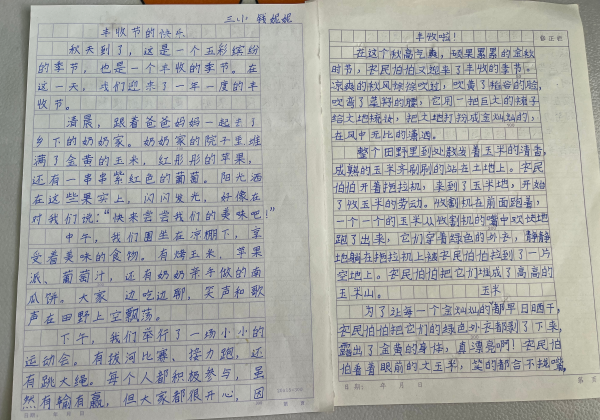 三小 钱妮妮
丰收节的快乐
秋天到了，这是一个五彩缤纷
的季节，也是一个丰收的季节。在
这一天，我们迎来了一年一度的丰
收节。
清晨，跟着爸爸妈妈一起去了
乡下的奶奶家。奶奶家的院子里堆
满了金黄的玉米，红彤彤的苹果，
还有一串串紫红色的葡萄。阳光洒
在这些果实上，闪闪发光，好像在
对我们说：“快来尝尝我们的美味吧！”
中午，我们围坐在凉棚下，享
受着美味的食物。有烤玉米，苹果
派、葡萄汁，还有奶奶亲手做的南
瓜饼。大家边吃边聊，笑声和歌
声在田野上空飘荡。
下午，我们举行了一场小小的
运动会。有拔河比赛、接力跑，还
有跳大绳。每个人都积极参与，虽
然有输有赢，但大家都很开心，因
丰收啦！
修正栏
在这个秋高气爽，硕果累累的金秋
时节，农民伯伯又迎来了丰收的季节。
凉爽的秋风悄悄吹过，吹黄了稻谷的脸，
吹弯了高粱的腰，它用一把巨大的梳子
给大地梳妆，把大地打扮成金灿灿的，
在风中无比的潇洒。
整个田野里到处散发着玉米的清香，
成熟的玉米齐刷刷的站在土地上。农民
伯伯开着拖拉机，来到了玉米地，开始
了收玉米的劳动。收割机在前面跑着，
一个一个的玉米从收割机的嘴中欢快地
跑了出来，它们穿着绿色的外衣，静静
地躺在拖拉机上被农民伯伯拉到了一片
空地上。农民伯伯把它们堆成了高高的
玉米山。
玉米
为了让每一个金灿灿的都早日晒干，
农民伯伯把它们的绿色外衣都剥了下来，
露出了金黄的身体，真漂亮啊！农民伯
伯看着眼前的大玉米，笑的都合不拢嘴，
日期： 年 月 日